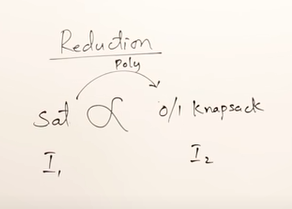 Reduction
Poly
Sat ∝ 0/1 Knapsack
I₁ I₂